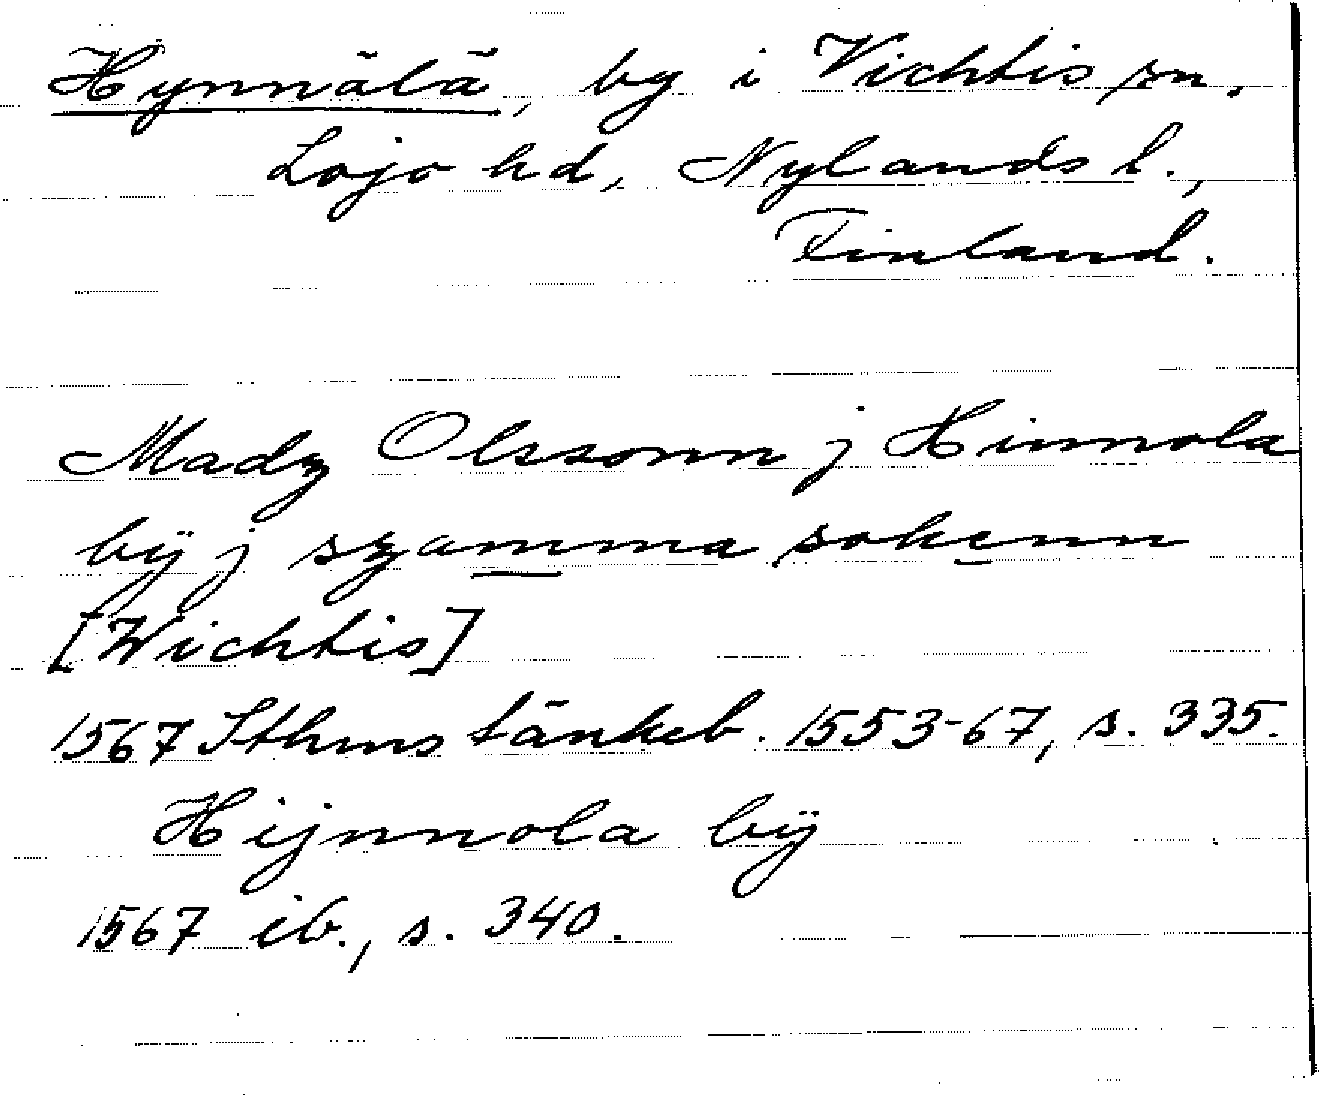 Hynnälä, by i Vichtis sn,
Lojo hd, Nylands l.,
Finland.
Madz Olssonn j Hinnola
bÿ j szamma sokenn
[Wichtis]
1567 Sthms tänkeb. 1553-67, s. 335.
Hijnnola bÿ
1567 ib., s. 340.